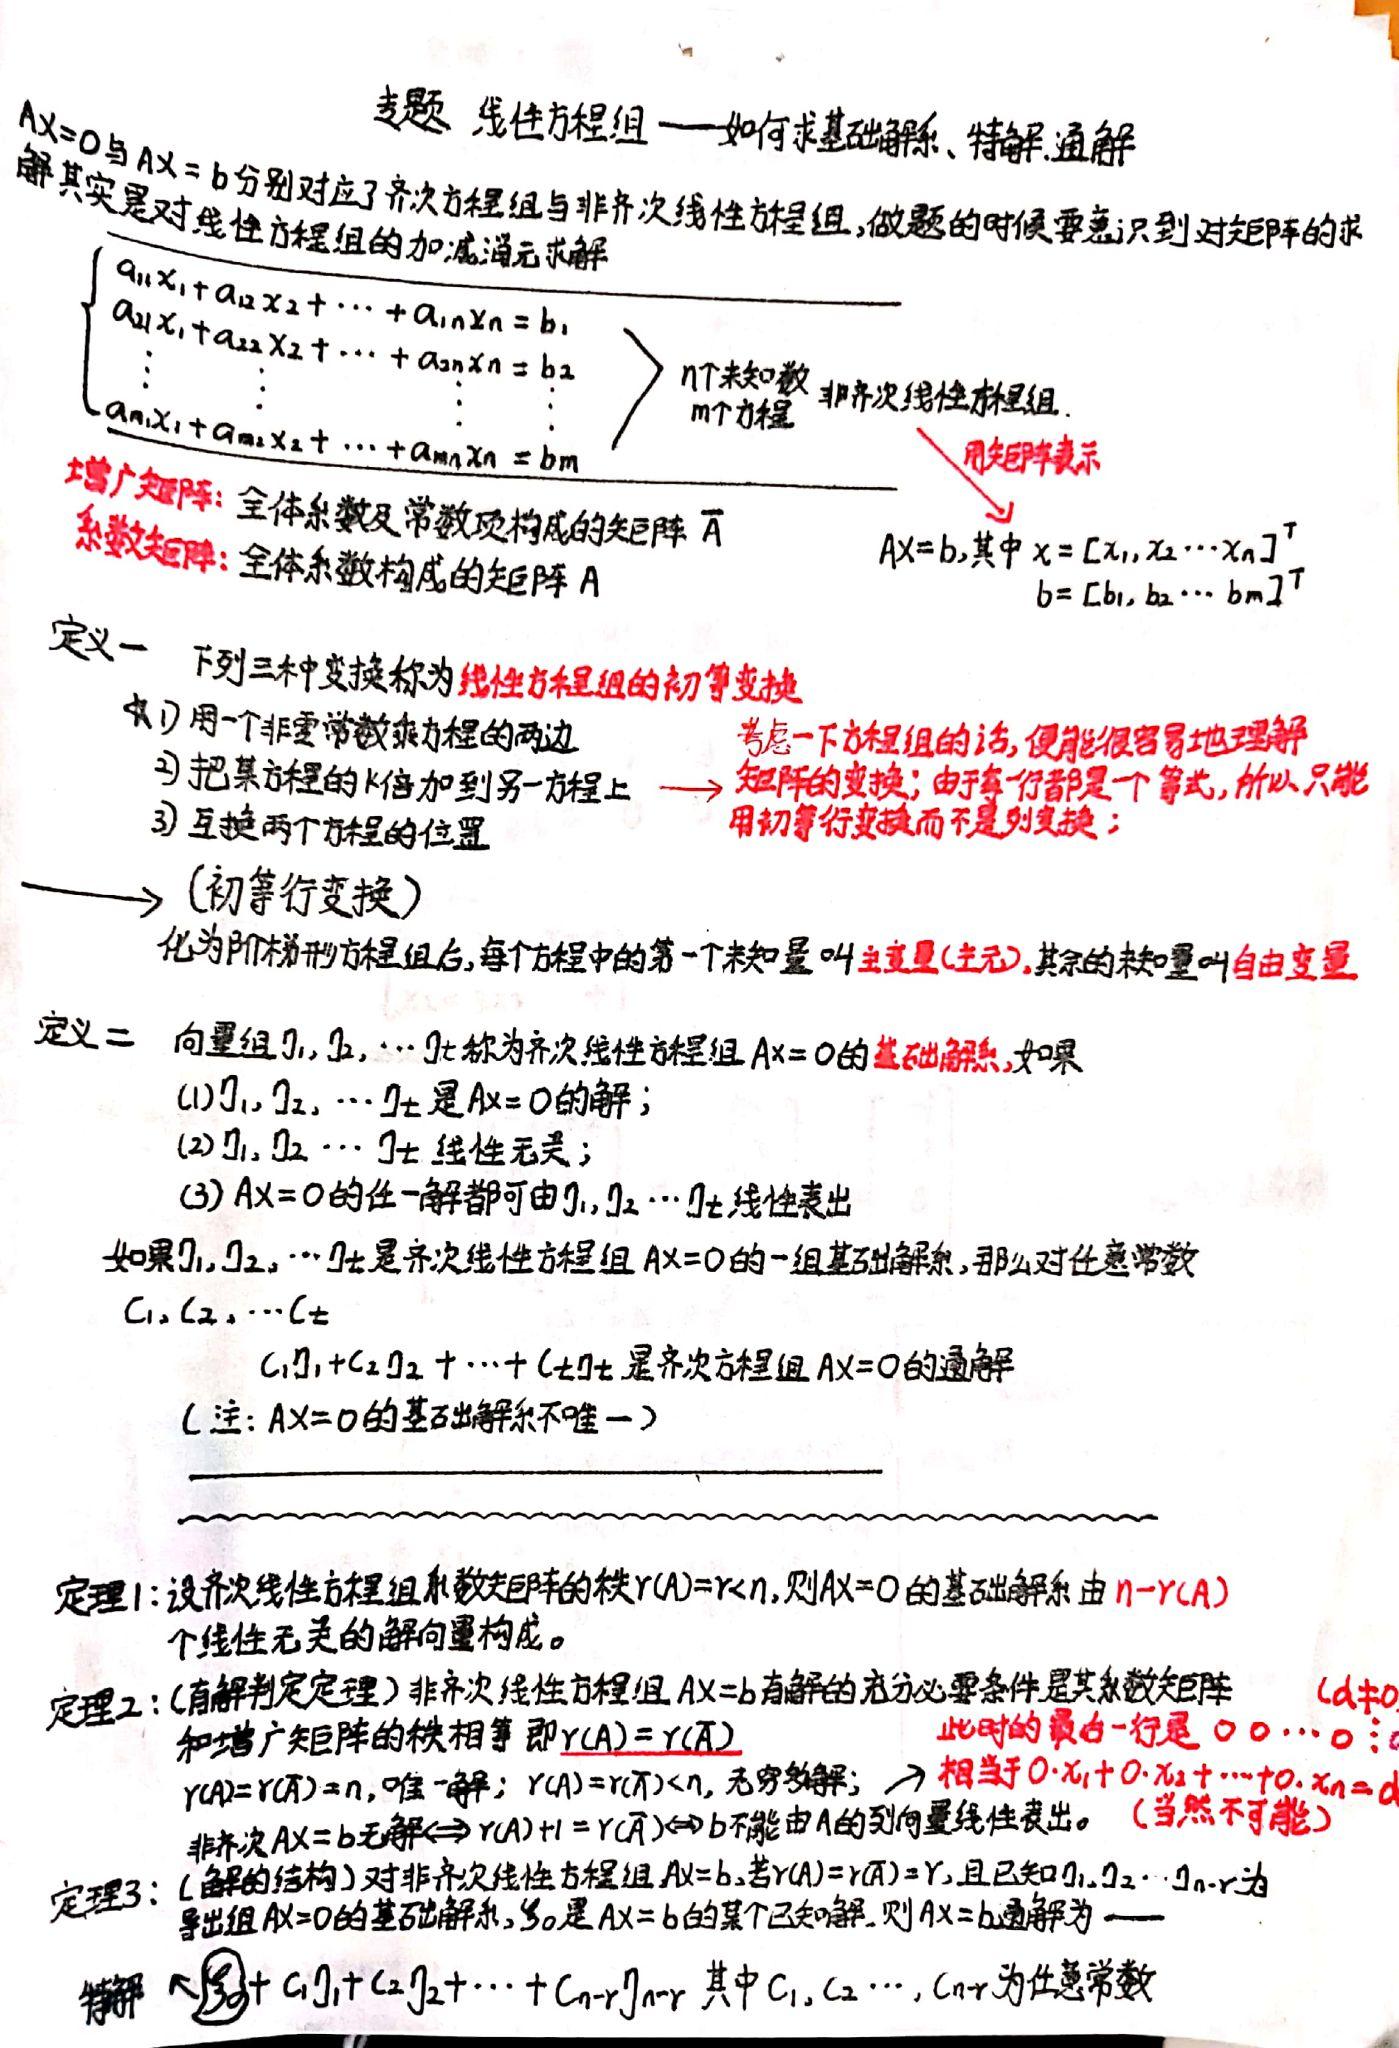 专题 线性方程组——如何求基础解系、特解、通解
AX=0与AX=b分别对应了齐次方程组与非齐次线性方程组,做题的时候要意识到对矩阵的求
解其实是对线性方程组的加减消元求解
a₁₁x₁+a₁₂x₂+⋯+a₁ₙxₙ=b₁
a₂₁x₁+a₂₂x₂+⋯+a₂ₙxₙ=b₂
⋮ ⋮ ⋮ ⋮
aₘ₁x₁+aₘ₂x₂+⋯+aₘₙxₙ=bₘ
n个未知数
m个方程
非齐次线性方程组.
用矩阵表示
增广矩阵: 全体系数及常数项构成的矩阵 A̅
系数矩阵: 全体系数构成的矩阵 A
AX=b,其中 x=[x₁,x₂⋯xₙ]ᵀ
b=[b₁,b₂⋯bₘ]ᵀ
定义一 下列三种变换称为线性方程组的初等变换
1) 用一个非零常数乘方程的两边
2) 把某方程的K倍加到另一方程上
3) 互换两个方程的位置
考虑一下方程组的话,便能很容易地理解
矩阵的变换;由于每一行都是一个等式,所以只能
用初等行变换而不是列变换;
→ (初等行变换)
化为阶梯形方程组后,每个方程中的第一个未知量叫主变量(主元).其余的未知量叫自由变量
定义二 向量组η₁,η₂,⋯ηₜ称为齐次线性方程组AX=0的基础解系,如果
(1)η₁,η₂,⋯ηₜ是AX=0的解;
(2)η₁,η₂⋯ηₜ线性无关;
(3)AX=0的任一解都可由η₁,η₂⋯ηₜ线性表出
如果η₁,η₂,⋯ηₜ是齐次线性方程组AX=0的一组基础解系,那么对任意常数
C₁,C₂,⋯Cₜ
C₁η₁+C₂η₂+⋯+Cₜηₜ是齐次方程组AX=0的通解
(注:AX=0的基础解系不唯一)
定理1:设齐次线性方程组系数矩阵的秩r(A)=r<n,则AX=0的基础解系由n-r(A)
个线性无关的解向量构成。
定理2:(有解判定定理)非齐次线性方程组AX=b有解的充分必要条件是其系数矩阵
和增广矩阵的秩相等即r(A)=r(A̅)
r(A)=r(A̅)=n,唯一解; r(A)=r(A̅)<n,无穷多解;
非齐次AX=b无解⟺r(A)+1=r(A̅)⟺b不能由A的列向量线性表出。
(d≠0
此时的最后一行是 0 0⋯0⋮
相当于0·x₁+0·x₂+⋯+0·xₙ=d
(当然不可能)
定理3:(解的结构)对非齐次线性方程组AX=b,若r(A)=r(A̅)=r,且已知η₁,η₂⋯ηₙ₋ᵣ为
导出组AX=0的基础解系,ξ₀是AX=b的某个已知解.则AX=b通解为——
特解 ↖ ξ₀+C₁η₁+C₂η₂+⋯+Cₙ₋ᵣηₙ₋ᵣ 其中C₁,C₂⋯,Cₙ₋ᵣ为任意常数